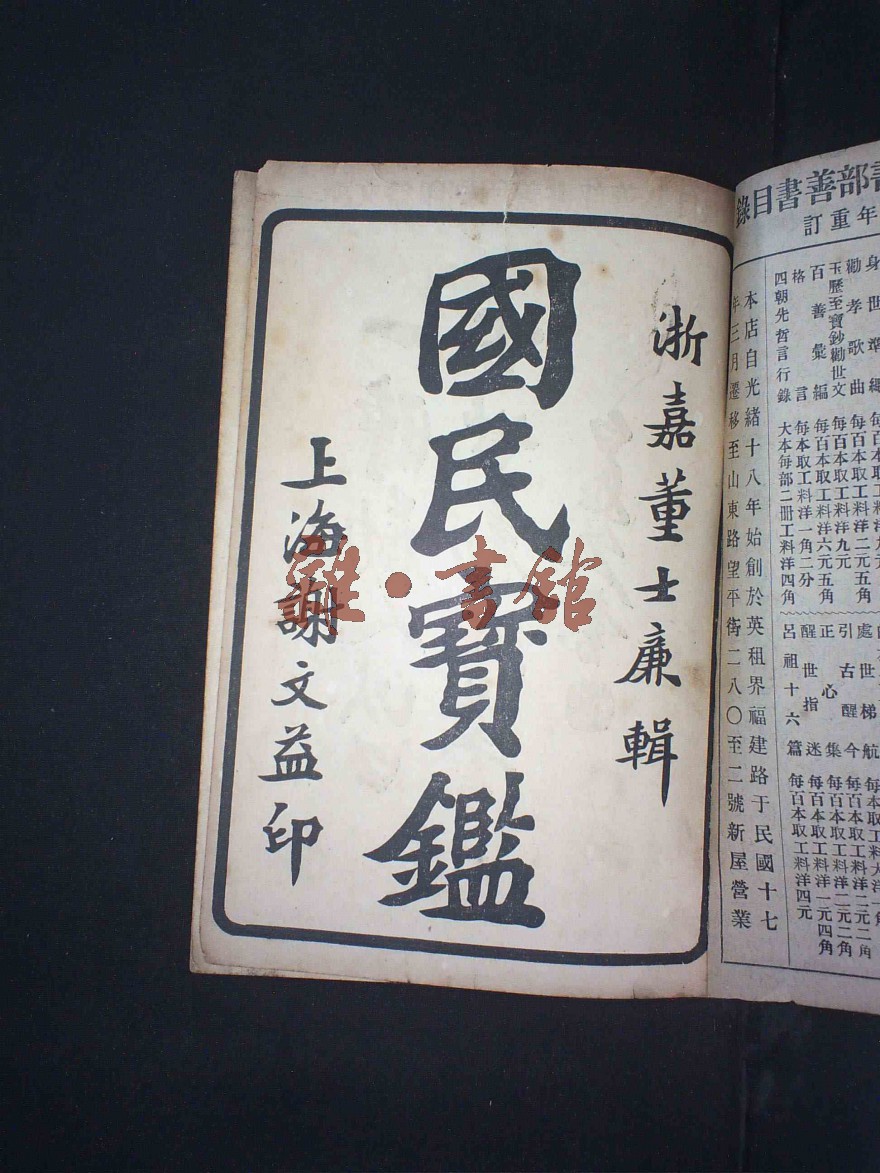 書部善書目錄
年重訂
身世準繩
勸孝歌曲
玉歷至寶鈔勸世文 每百本取工料洋九元
百善彙編 每百本取工料洋六元五角
格言 每本取工料洋一角二分
四朝先哲言行錄 大本每部二冊工料洋四角
處世梯航
引古醒今 每百本取工料洋二元二角
正心集 每百本取工料洋二元二角
醒世指迷 每百本取工料洋一元四角
呂祖十六篇 每百本取工料洋四元
本店自光緒十八年始創於英租界福建路于民國十七
年三月遷移至山東路望平街二八〇至二號新屋營業
浙嘉董士廉輯
國民寶鑑
上海謝文益印
雜·書館